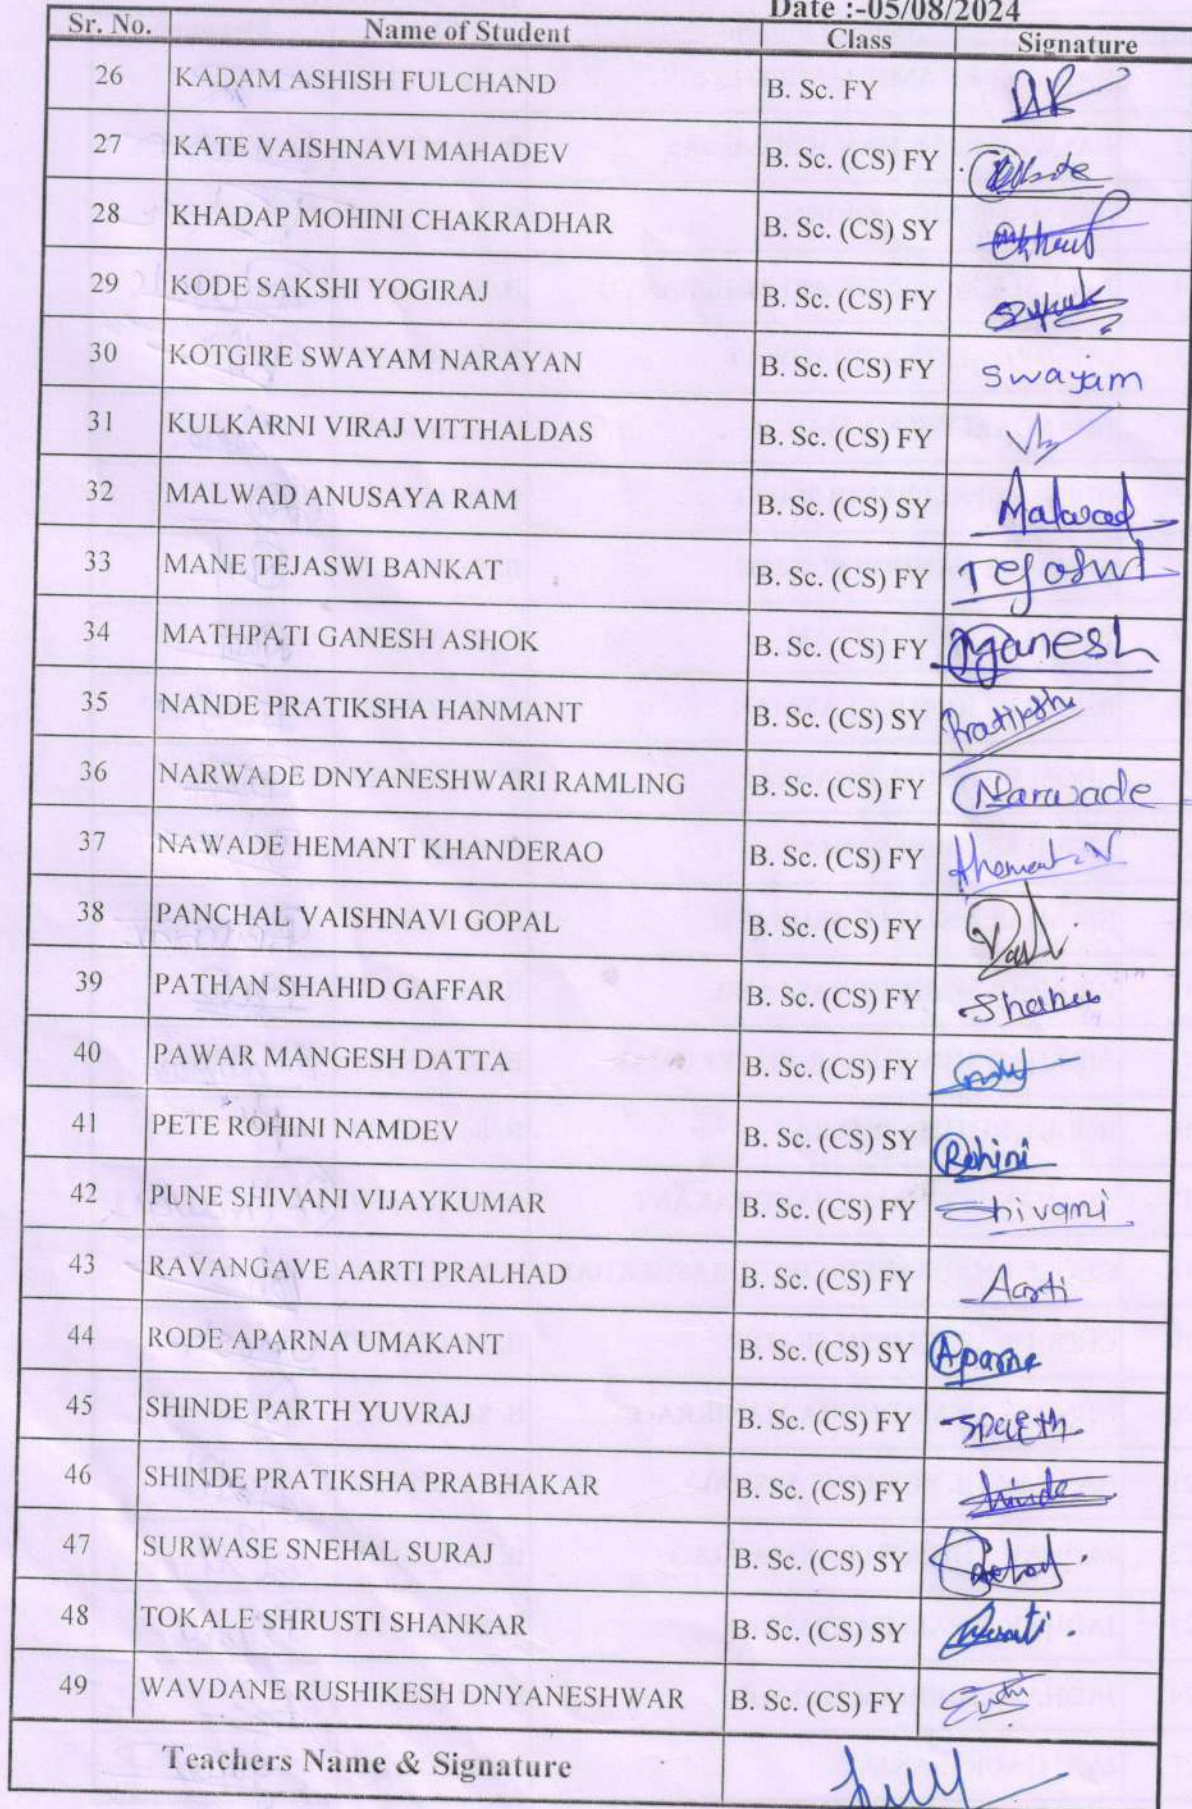 Date :-05/08/2024
Sr. No. Name of Student Class Signature
26 KADAM ASHISH FULCHAND B. Sc. FY
27 KATE VAISHNAVI MAHADEV B. Sc. (CS) FY
28 KHADAP MOHINI CHAKRADHAR B. Sc. (CS) SY
29 KODE SAKSHI YOGIRAJ B. Sc. (CS) FY
30 KOTGIRE SWAYAM NARAYAN B. Sc. (CS) FY swayam
31 KULKARNI VIRAJ VITTHALDAS B. Sc. (CS) FY
32 MALWAD ANUSAYA RAM B. Sc. (CS) SY Malwad
33 MANE TEJASWI BANKAT B. Sc. (CS) FY Tejaswi
34 MATHPATI GANESH ASHOK B. Sc. (CS) FY Ganesh
35 NANDE PRATIKSHA HANMANT B. Sc. (CS) SY Pratiksha
36 NARWADE DNYANESHWARI RAMLING B. Sc. (CS) FY Narwade
37 NAWADE HEMANT KHANDERAO B. Sc. (CS) FY Hemant N
38 PANCHAL VAISHNAVI GOPAL B. Sc. (CS) FY
39 PATHAN SHAHID GAFFAR B. Sc. (CS) FY
40 PAWAR MANGESH DATTA B. Sc. (CS) FY
41 PETE ROHINI NAMDEV B. Sc. (CS) SY Rohini
42 PUNE SHIVANI VIJAYKUMAR B. Sc. (CS) FY Shivani
43 RAVANGAVE AARTI PRALHAD B. Sc. (CS) FY Aarti
44 RODE APARNA UMAKANT B. Sc. (CS) SY Aparna
45 SHINDE PARTH YUVRAJ B. Sc. (CS) FY
46 SHINDE PRATIKSHA PRABHAKAR B. Sc. (CS) FY
47 SURWASE SNEHAL SURAJ B. Sc. (CS) SY
48 TOKALE SHRUSTI SHANKAR B. Sc. (CS) SY
49 WAVDANE RUSHIKESH DNYANESHWAR B. Sc. (CS) FY
Teachers Name & Signature